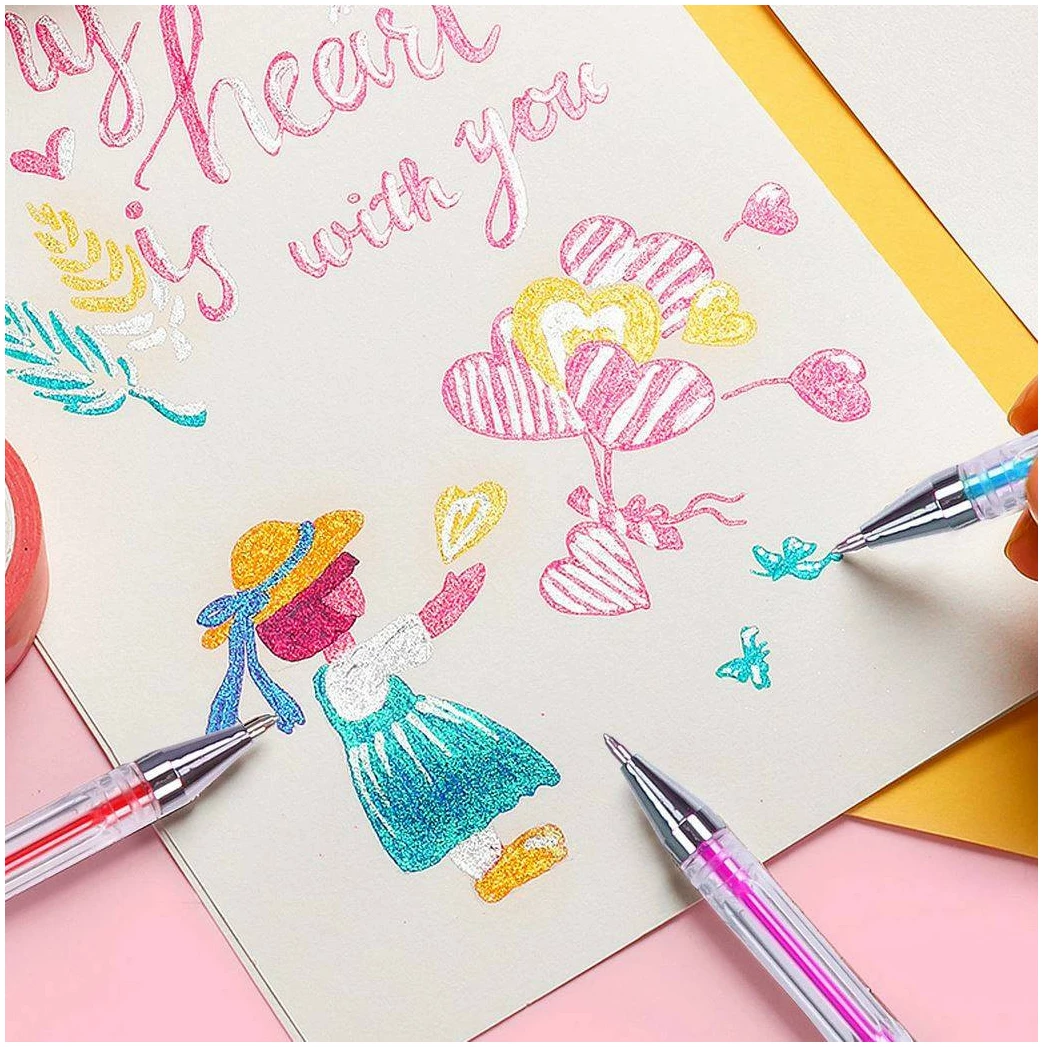 my heart
is with you